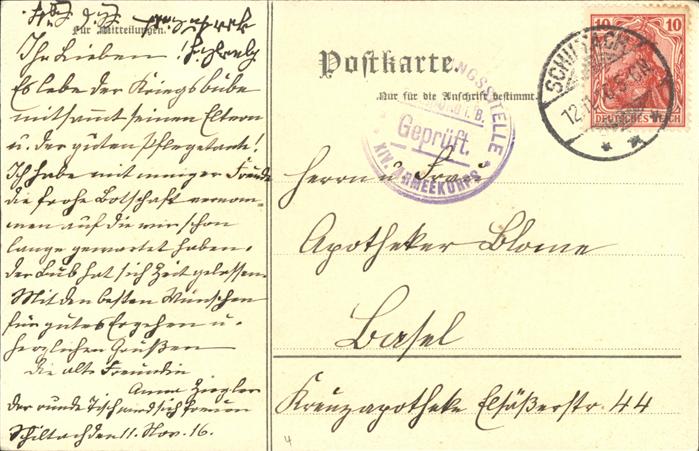 Für Mitteilungen.
Ihr Lieben!
Es lebe der Kriegsbube
mitsammt seinen Eltern
u. der guten Pflegetante!
Ich habe mit inniger Freude
die frohe Botschaft vernom-
men auf die wir schon
lange gewartet haben,
der Bub hat sich Zeit gelassen.
Mit den besten Wünschen
für gutes Ergehen u.
herzlichen Grüßen
die alte Freundin
Anna Ziegler
der runde Tisch wird sich freuen
Schiltach den 11. Nov. 16.
Postkarte.
Nur für die Anschrift bestimmt.
Geprüft.
XIV. ARMEEKORPS
SCHILTACH
10 10
DEUTSCHES REICH
Herrn u Frau
Apotheker Blome
Basel
Kreuzapotheke Elsäßerstr. 44
4